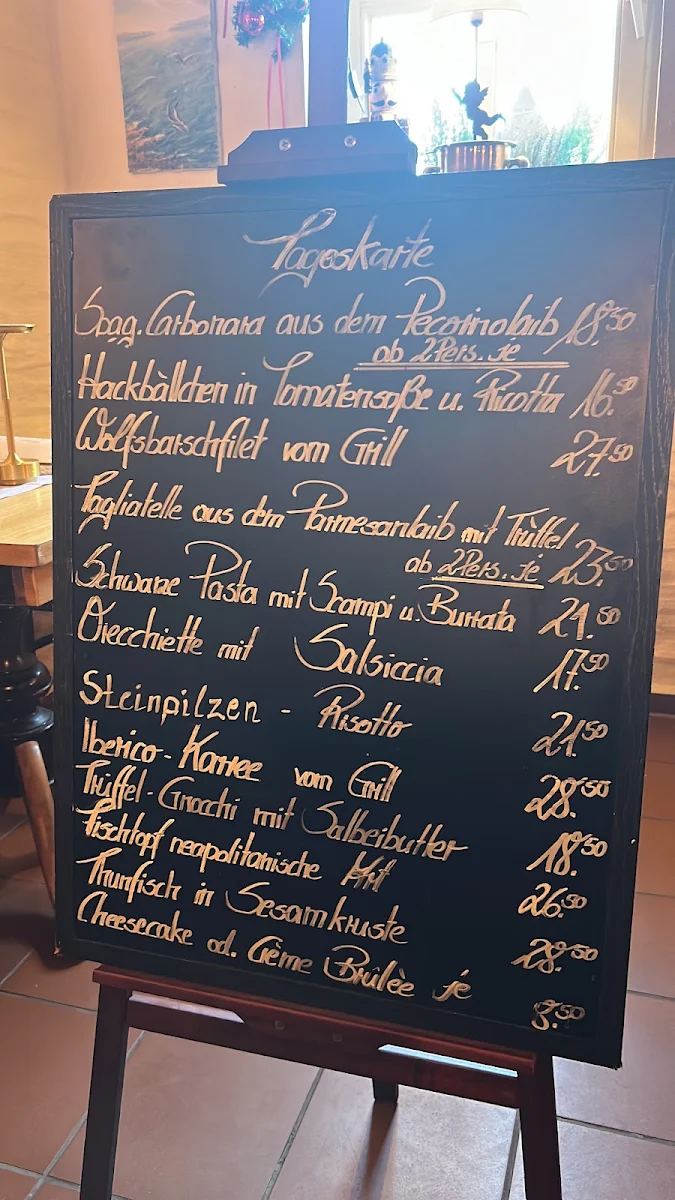 Tageskarte
Spag. Carbonara aus dem Pecorinolaib 18.50
ab 2Pers. je
Hackbällchen in Tomatensoße u. Ricotta 16.50
Wolfsbarschfilet vom Grill 27.50
Tagliatelle aus dem Parmesanlaib mit Trüffel
ab 2Pers. je 23.50
Schwarze Pasta mit Scampi u. Burrata 21.50
Orecchiette mit Salsiccia 17.50
Steinpilzen - Risotto 21.50
Iberico - Karree vom Grill 28.50
Trüffel - Gnocchi mit Salbeibutter 18.50
Fischtopf neapolitanische Art 26.50
Thunfisch in Sesamkruste 28.50
Cheesecake od. Crème Brûlèe je 8.50